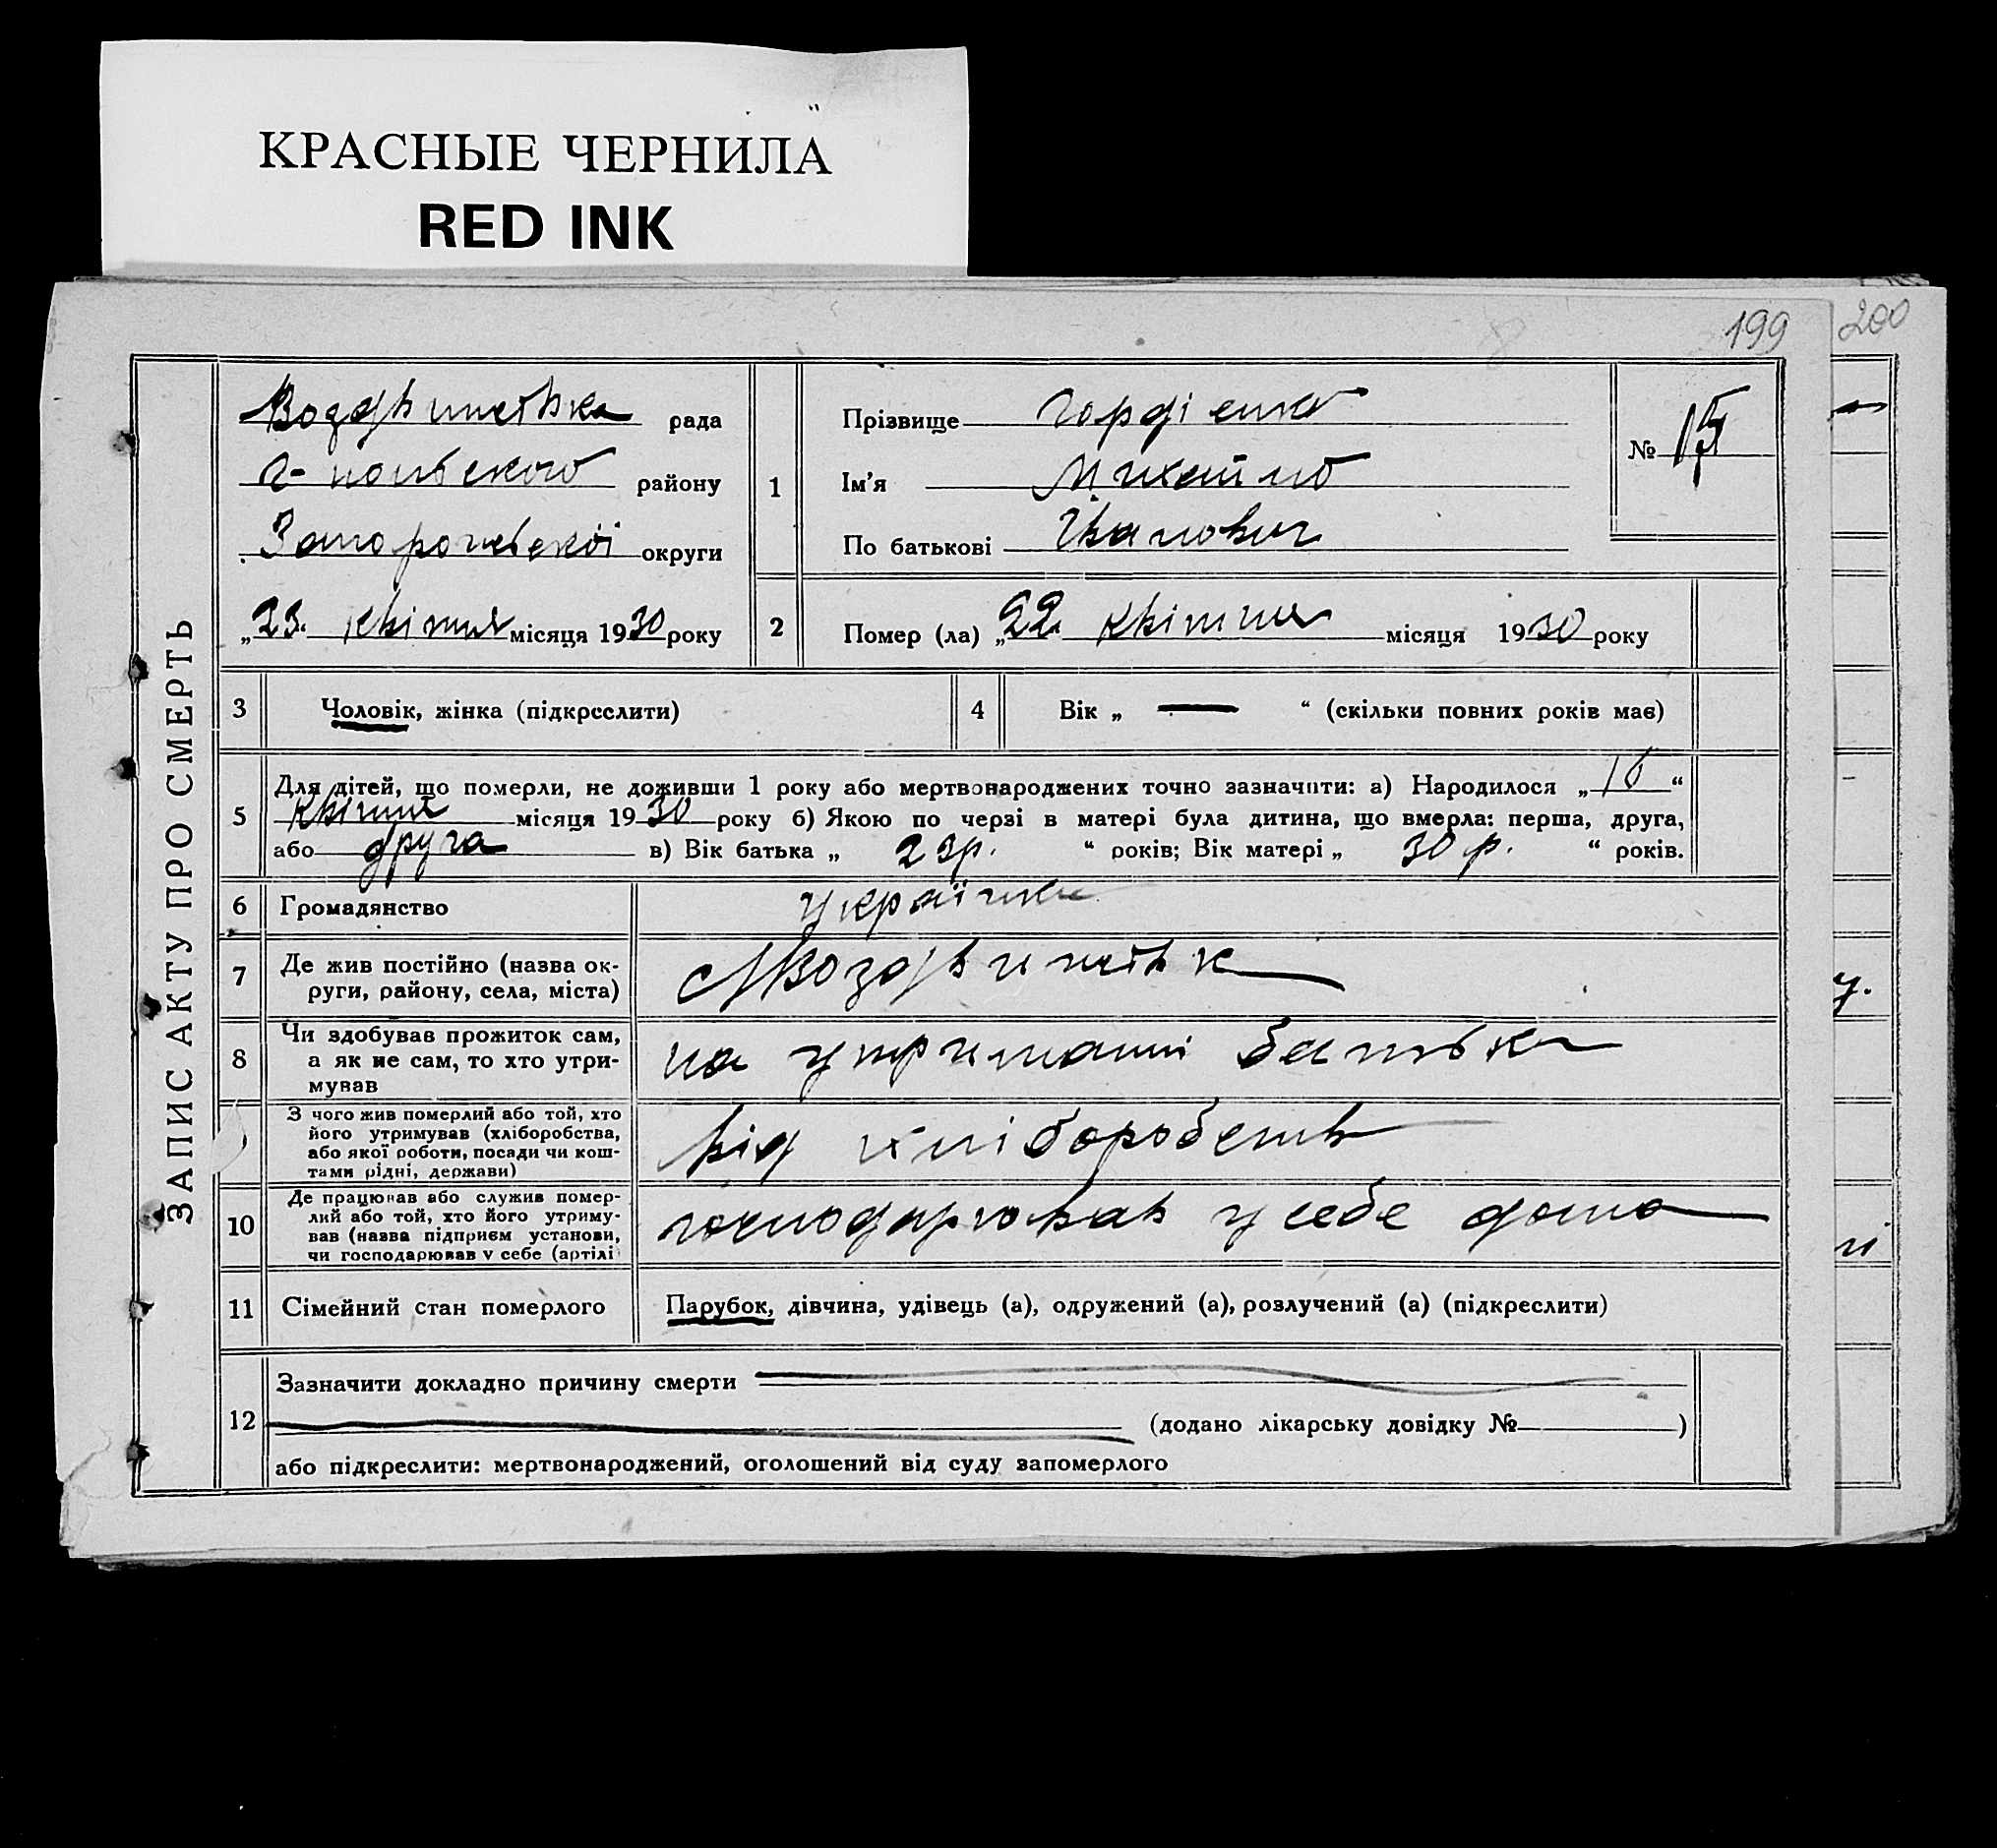 КРАСНЫЕ ЧЕРНИЛА
RED INK
199
200
ЗАПИС АКТУ ПРО СМЕРТЬ
рада
Г-польського району
Запорожської округи
„23. квітня місяця 1930 року
1
Прізвище Гордієнко
Ім'я Михайло
По батькові Іванович
№ 15
2
Помер (ла) „22 квітня місяця 1930 року
3 Чоловік, жінка (підкреслити)
4 Вік „ — “ (скільки повних років має)
5 Для дітей, що померли, не доживши 1 року або мертвонароджених точно зазначити: а) Народилося „16“
квітня місяця 1930 року б) Якою по черзі в матері була дитина, що вмерла: перша, друга,
або друга в) Вік батька „ р. “ років; Вік матері „ 30 р. “ років.
6 Громадянство
7 Де жив постійно (назва ок-
руги, району, села, міста)
8 Чи здобував прожиток сам,
а як не сам, то хто утри-
мував
на утриманні батька
З чого жив померлий або той, хто
його утримував (хліборобства,
або якої роботи, посади чи кош-
тами рідні, держави)
від хліборобств
10 Де працював або служив помер-
лий або той, хто його утриму-
вав (назва підприєм установи,
чи господарював у себе (артілі
господарював у себе дома
11 Сімейний стан померлого Парубок, дівчина, удівець (а), одружений (а), розлучений (а) (підкреслити)
12 Зазначити докладно причину смерти
(додано лікарську довідку № )
або підкреслити: мертвонароджений, оголошений від суду запомерлого